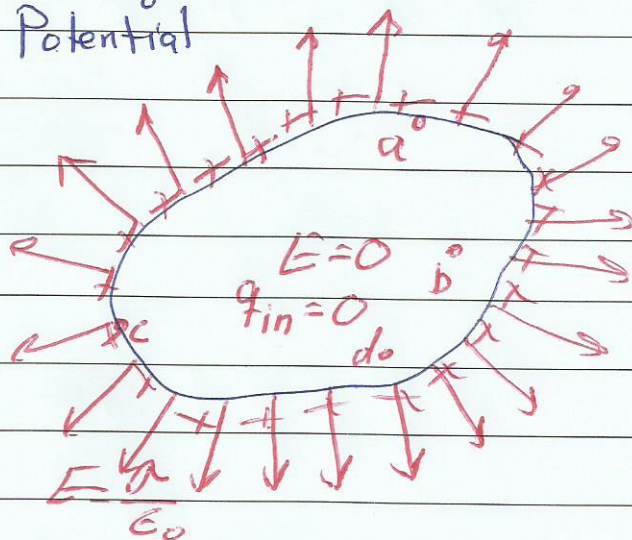 Potential
a
E=0
b
q_in = 0
d
c
E = σ/ε₀